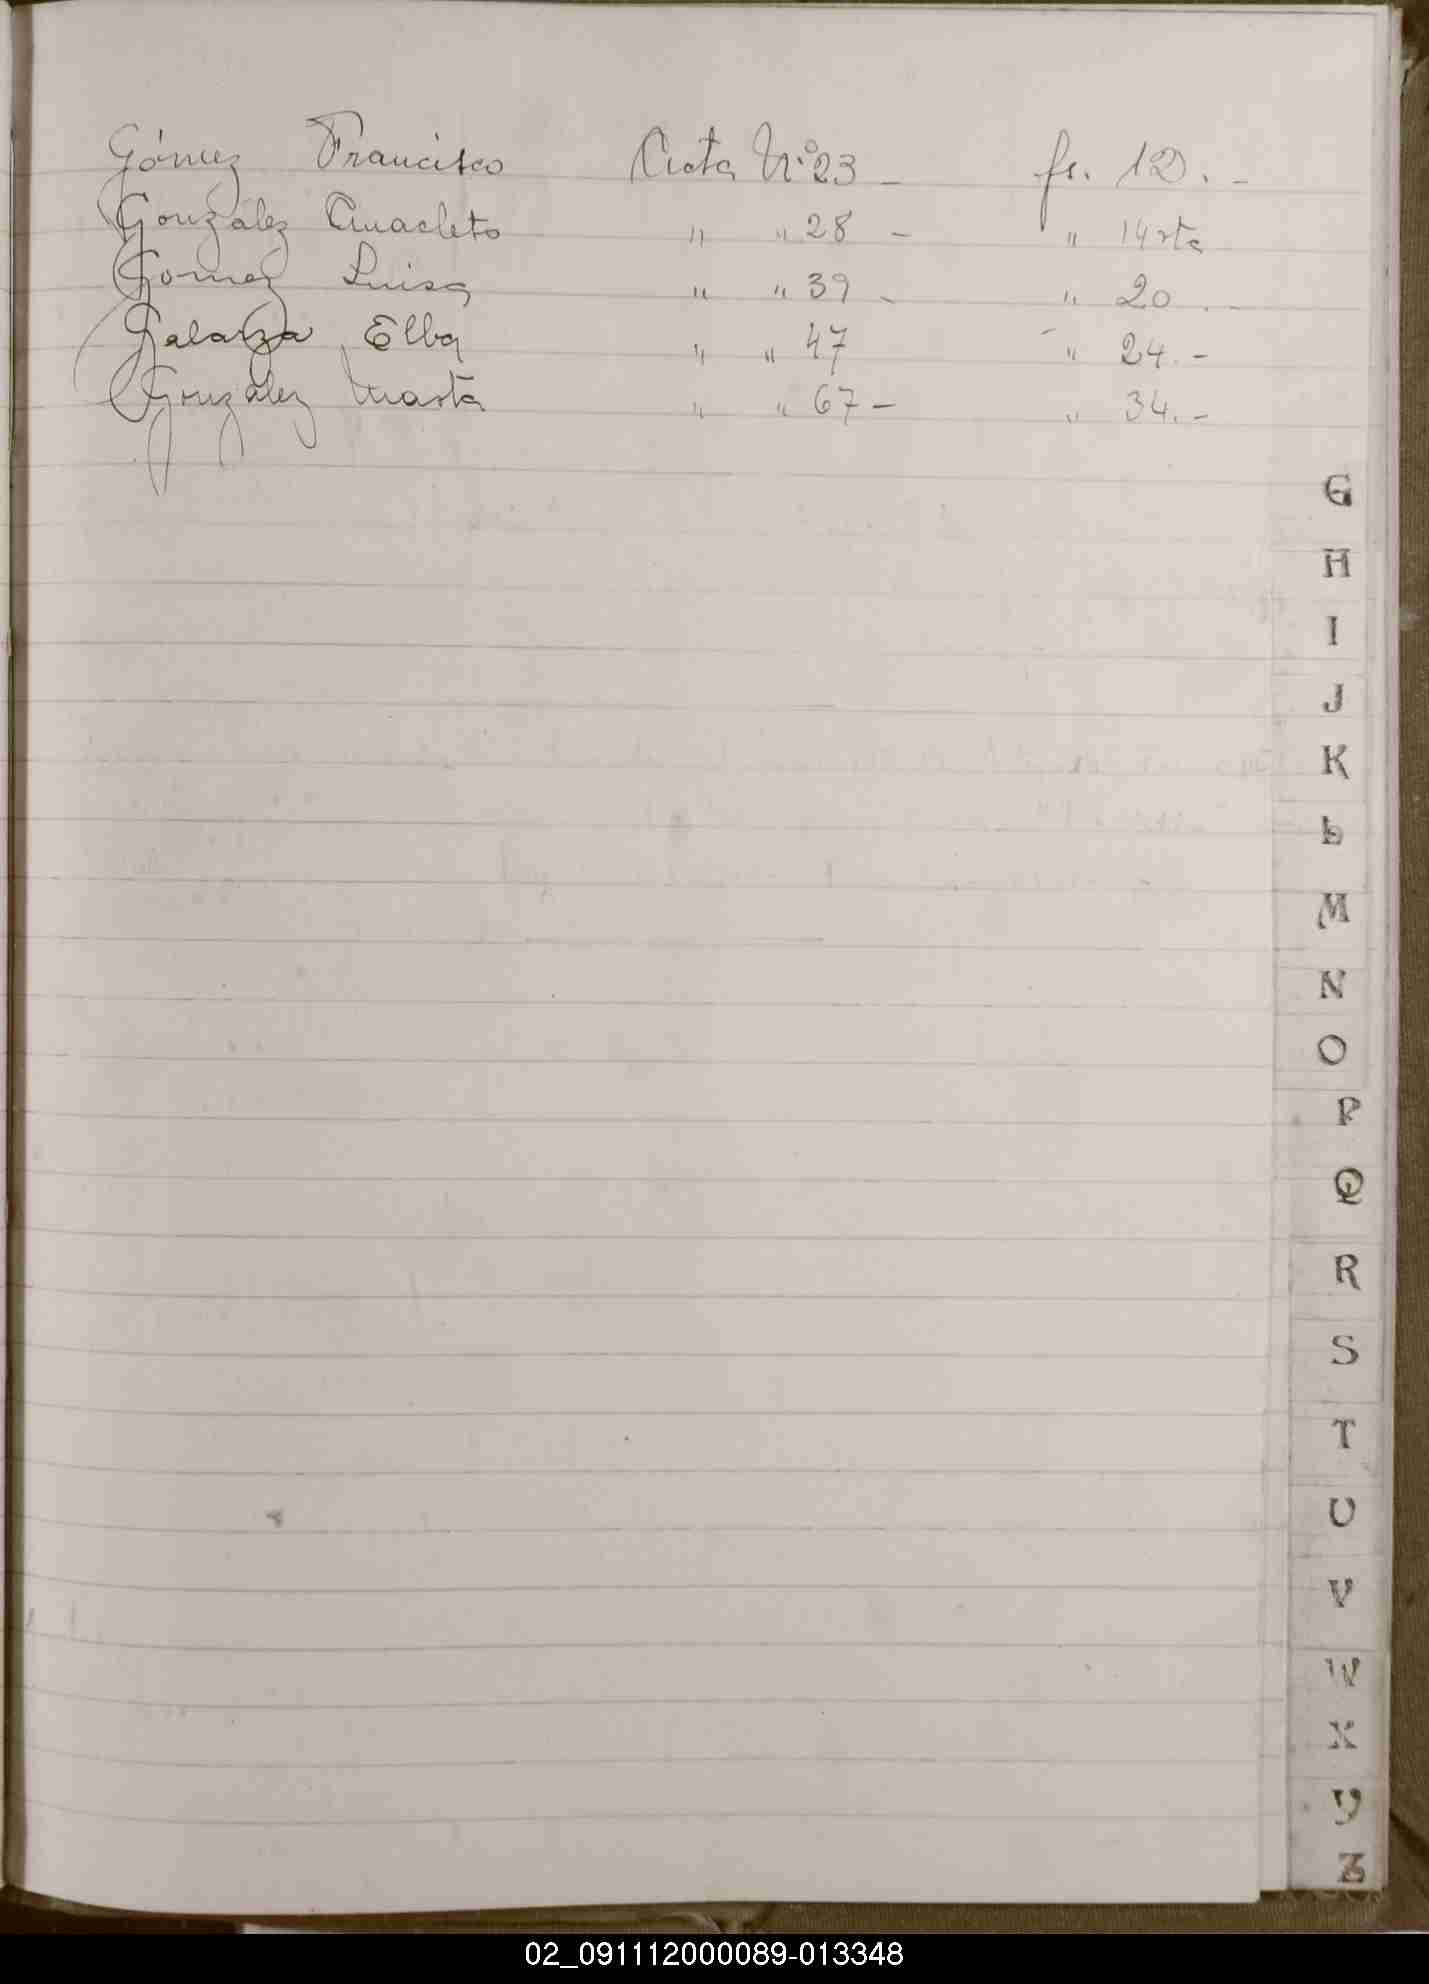 Gómez Francisco Acta Nº 23 - fs. 12. -
González Anacleto " " 28 - " 14 vta
Gomez Luisa " " 39 - " 20 . -
Galarza Elba " " 47 - " 24. -
González Marta " " 67 - " 34. -
G
H
I
J
K
L
M
N
O
P
Q
R
S
T
U
V
W
X
Y
Z
02_091112000089-013348